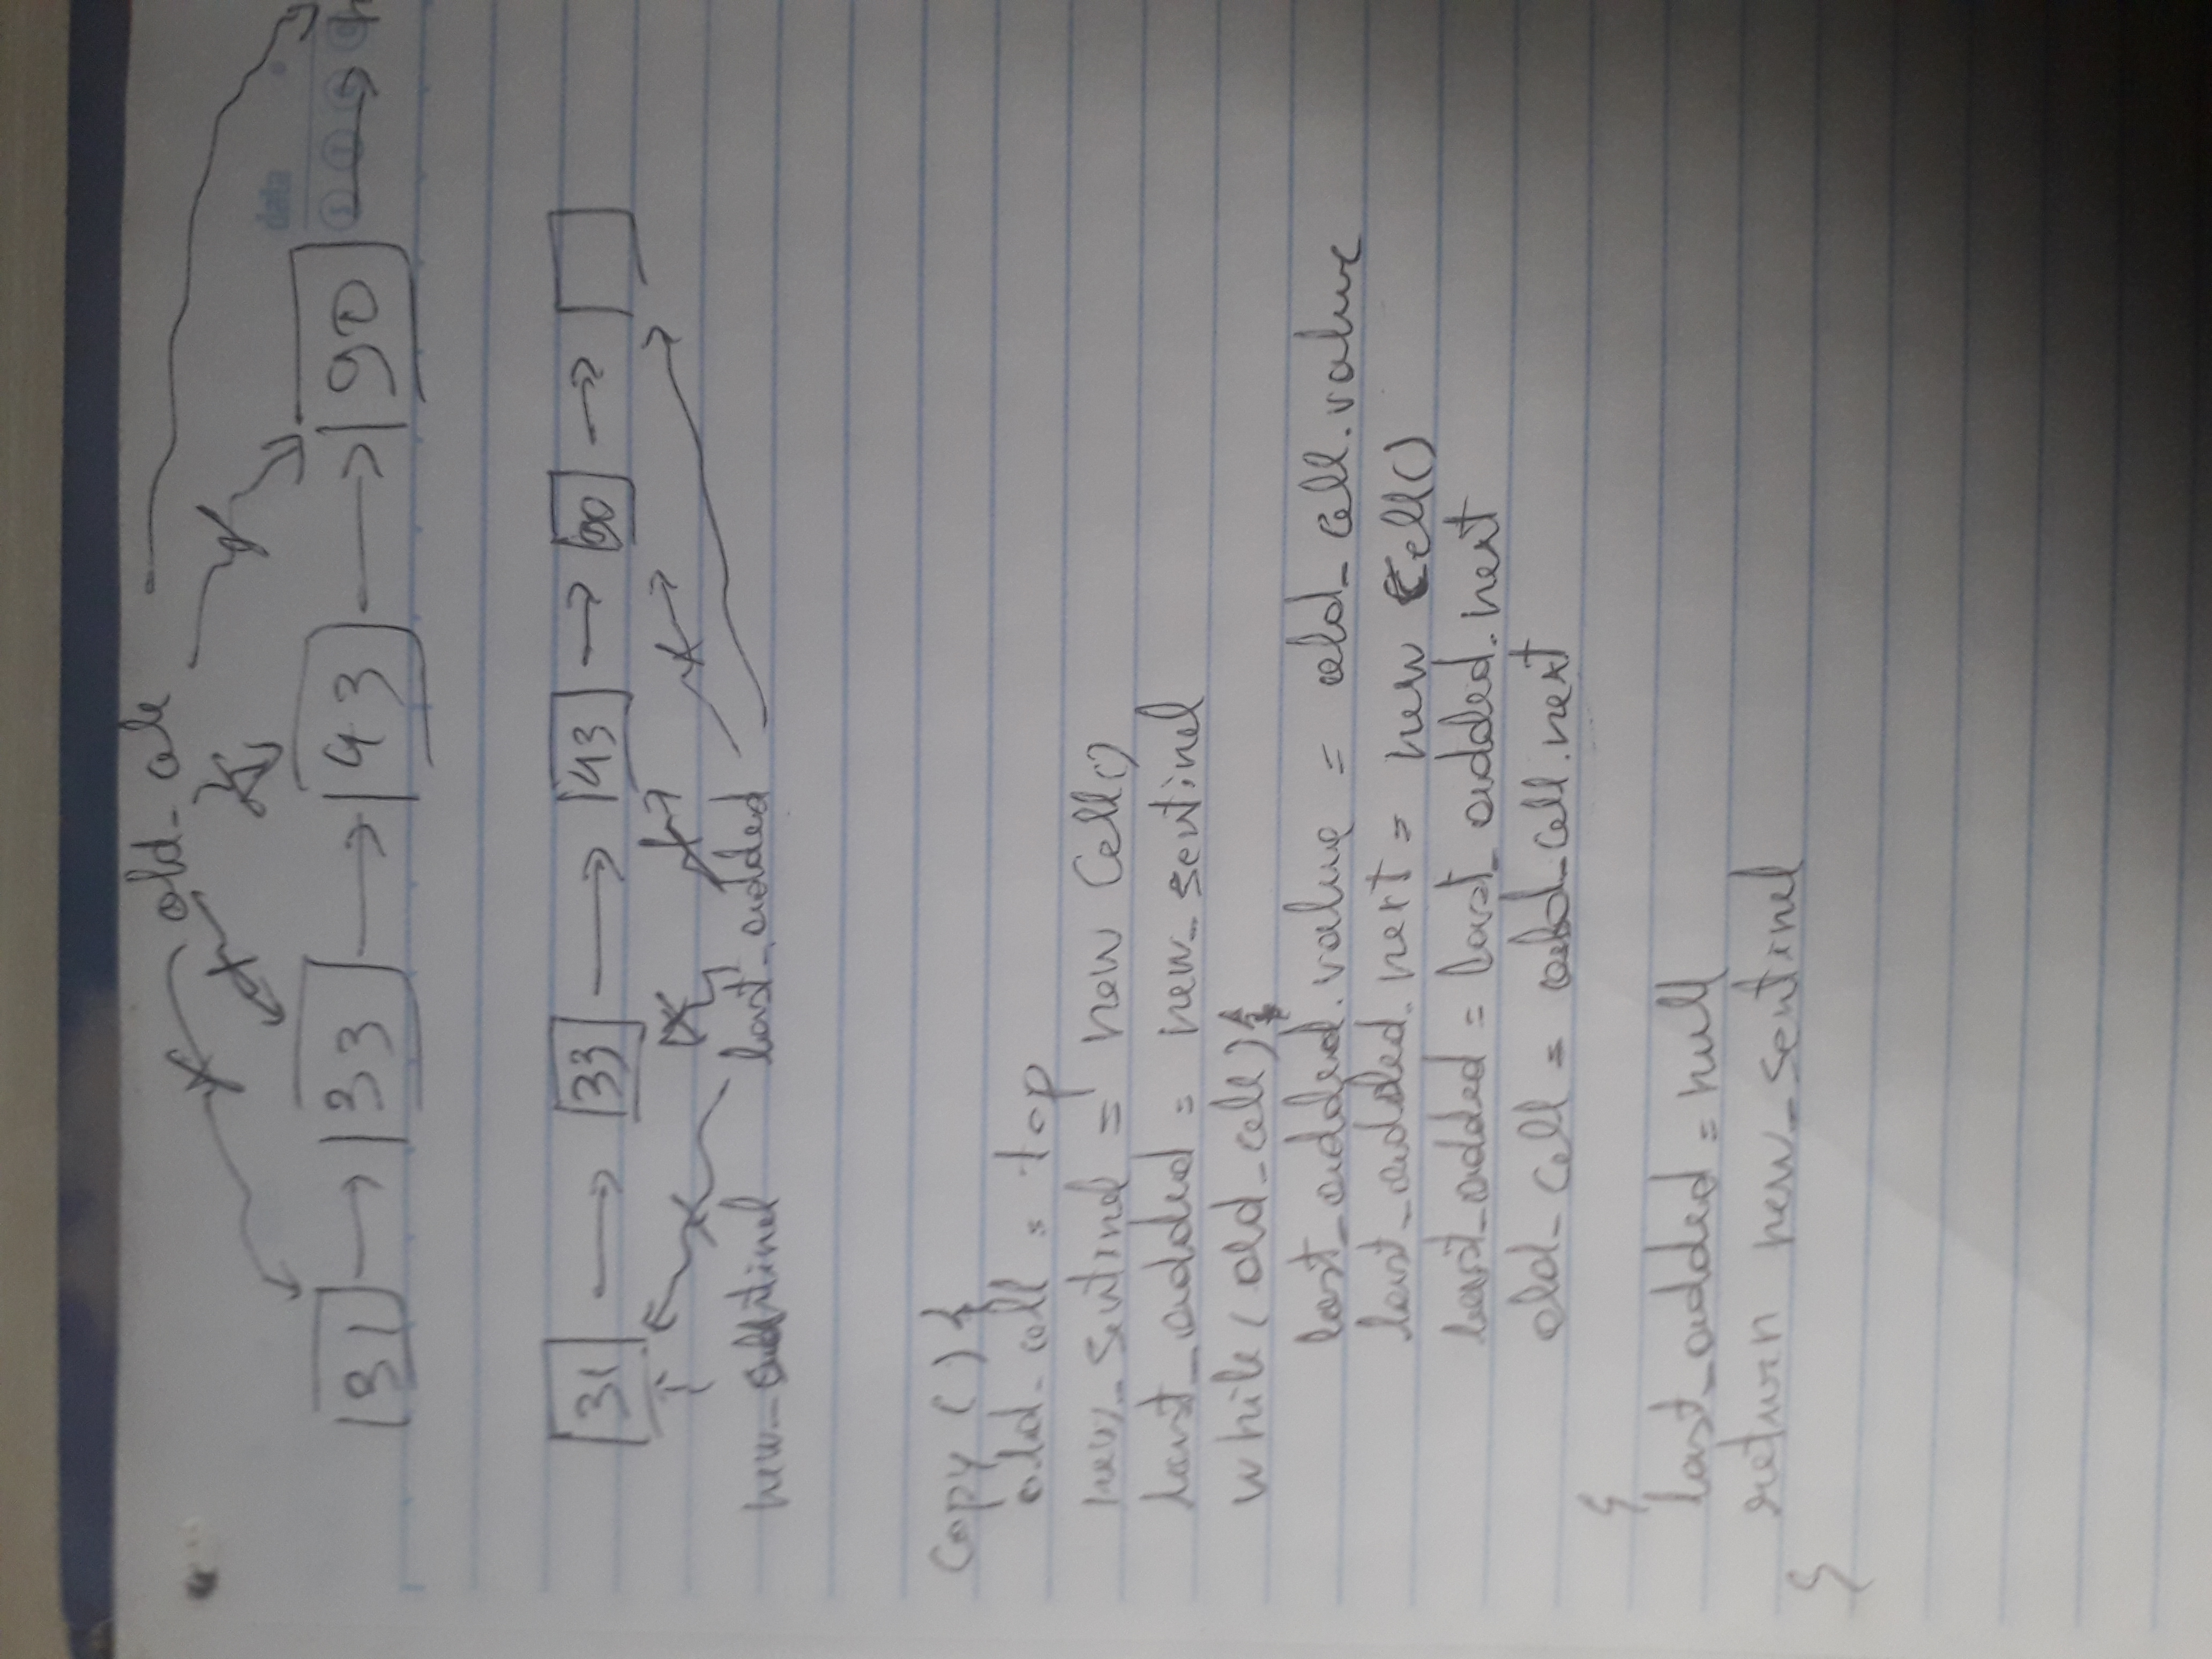 old_cell
data
31 33 43 90
31 33 43 90
new_sentinel last_added
Copy () {
old_cell = top
new_sentinel = new Cell()
last_added = new_sentinel
while (old_cell) {
last_added.value = old_cell.value
last_added.next = new Cell()
last_added = last_added.next
old_cell = old_cell.next
}
last_added = null
return new_sentinel
}